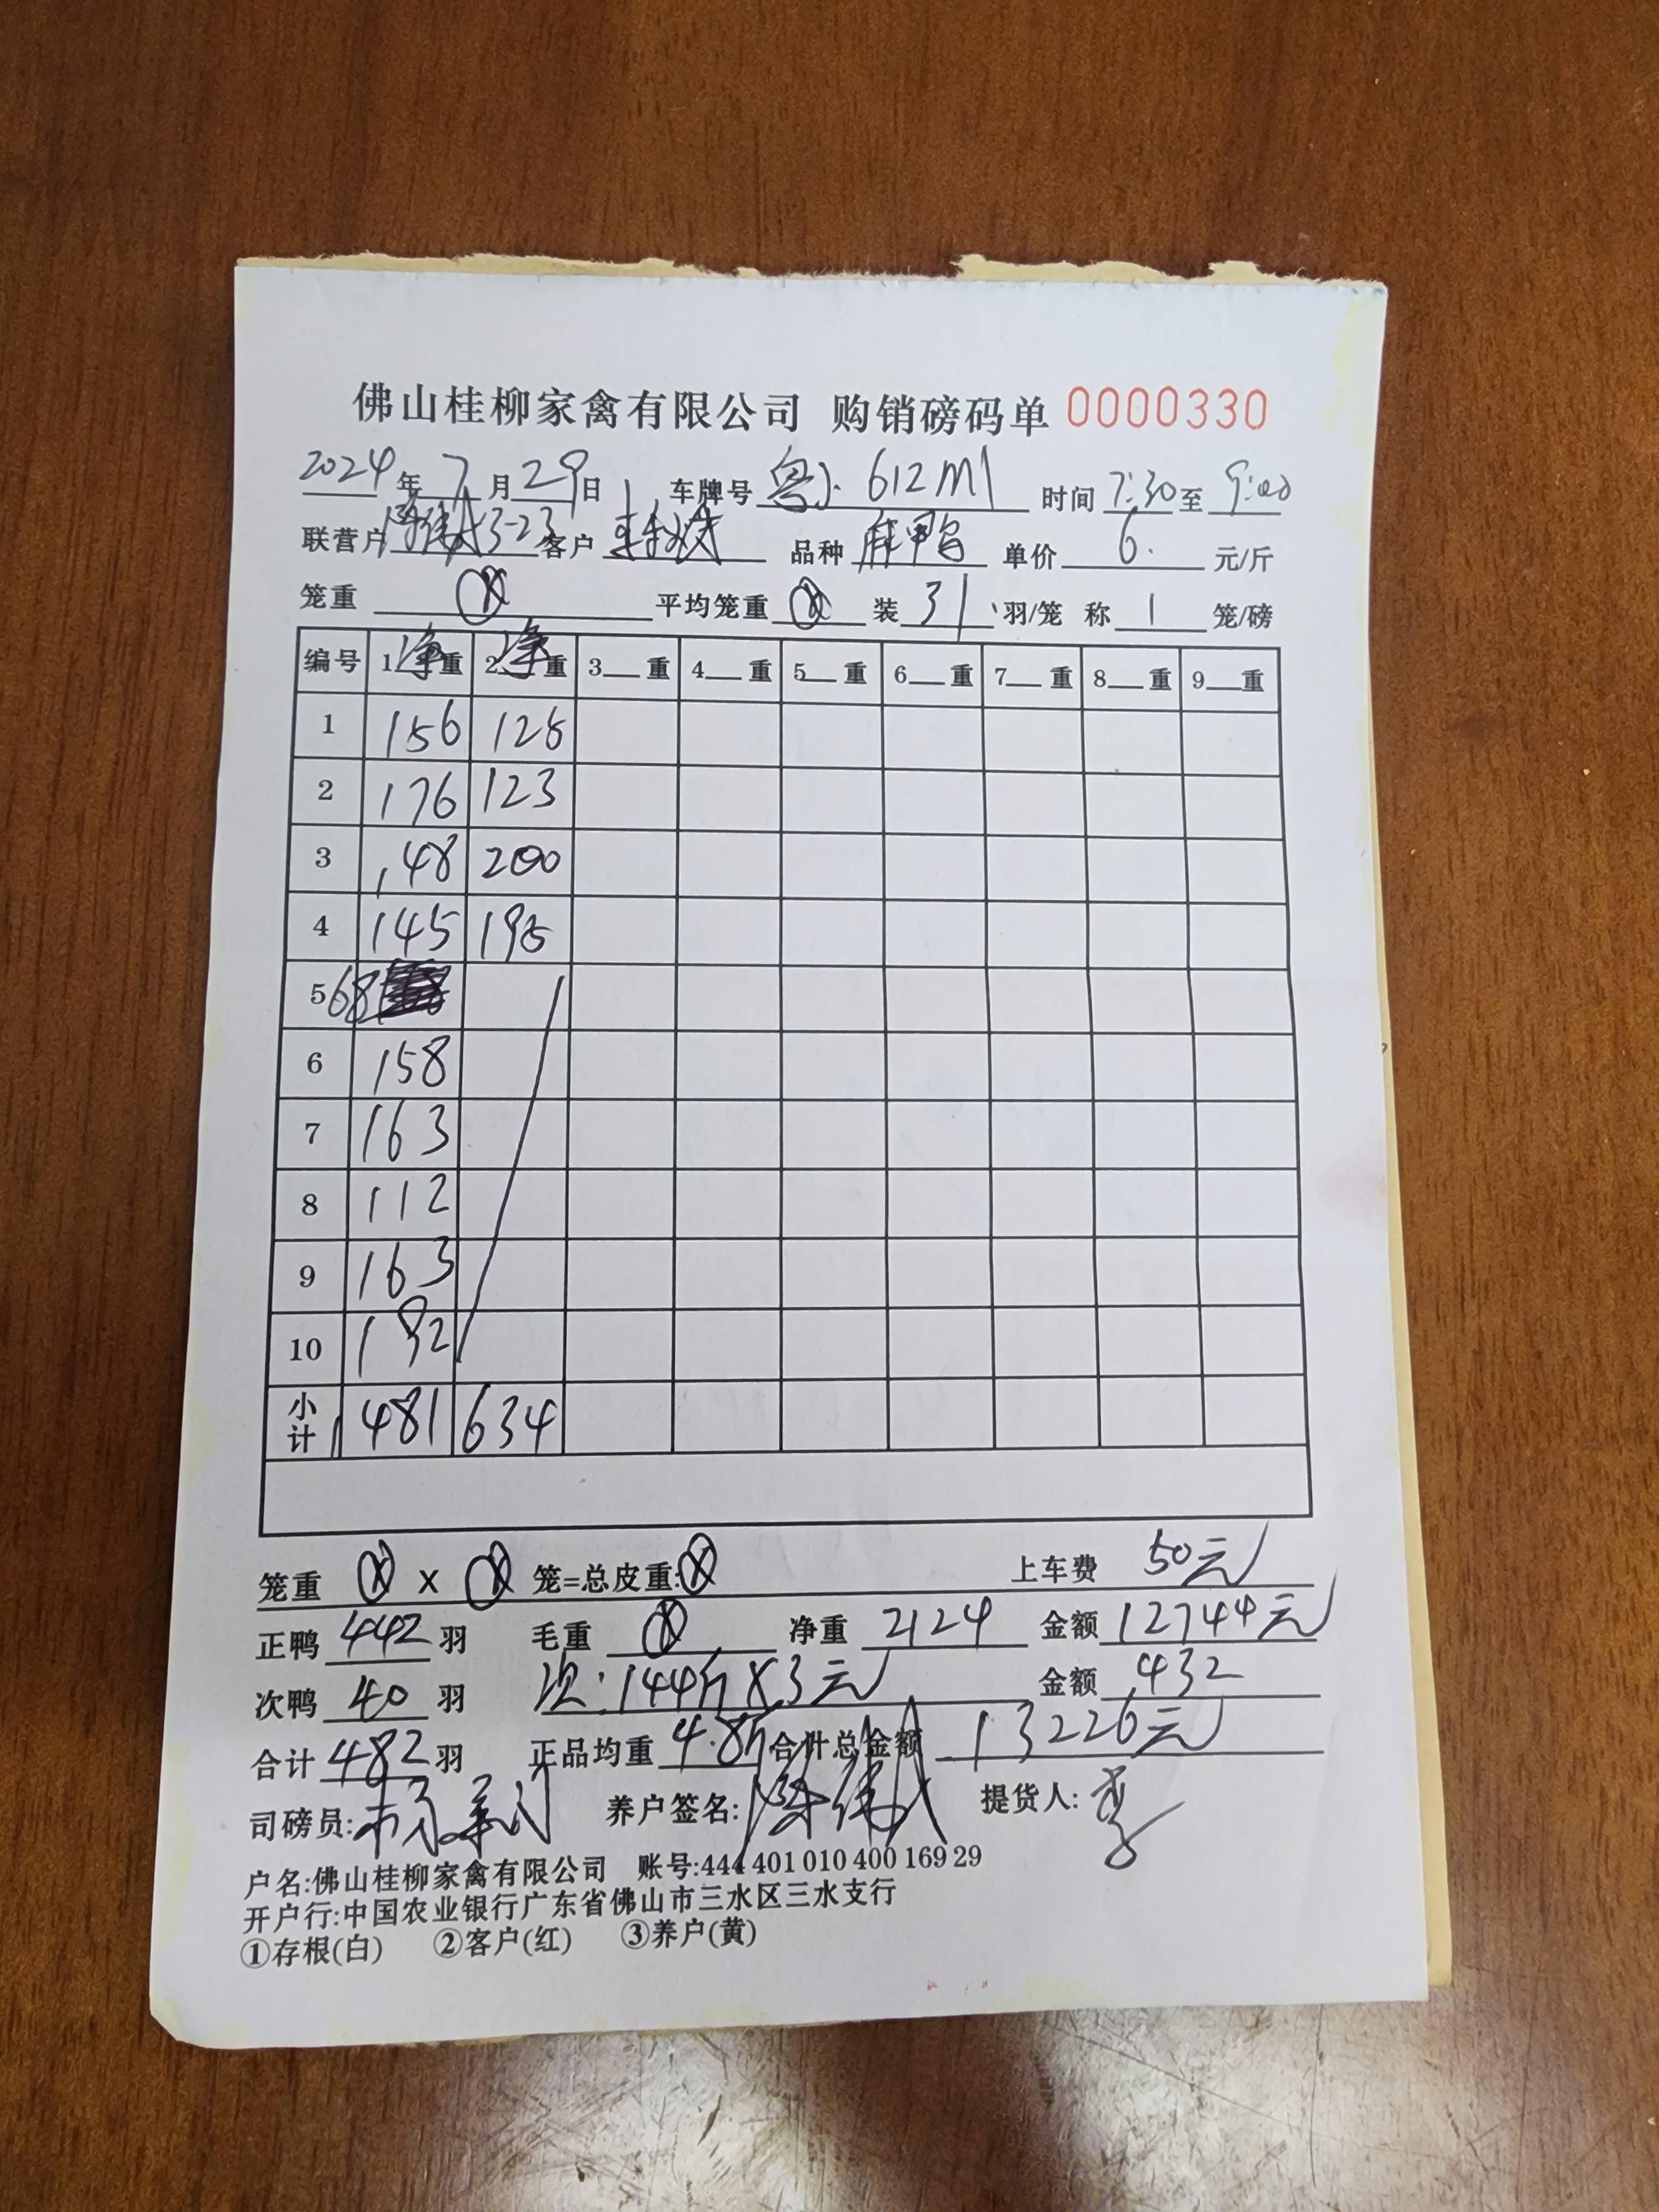 佛山桂柳家禽有限公司 购销磅码单 0000330
2024年 7月29日 车牌号 粤J·612M1 时间 7:30 至 9:00
联营户 13-23 客户 品种 麻鸭 单价 6. 元/斤
笼重 ⓧ 平均笼重 ⓧ 装 31 羽/笼 称 1 笼/磅
编号 1净重 2净重 3__重 4__重 5__重 6__重 7__重 8__重 9__重
1 156 125
2 176 123
3 148 200
4 145 195
5 68
6 158
7 163
8 112
9 163
10 192
小计 1481 634
笼重 ⓧ x ⓧ 笼=总皮重:ⓧ 上车费 50元
正鸭 442 羽 毛重 ⓧ 净重 2124 金额 12744元
次鸭 40 羽 次:144斤X3元 金额 432
合计 482 羽 正品均重 4.8斤 合计总金额 13226元
司磅员: 养户签名: 提货人: 李
户名:佛山桂柳家禽有限公司 账号:444 401 010 400 169 29
开户行:中国农业银行广东省佛山市三水区三水支行
①存根(白) ②客户(红) ③养户(黄)